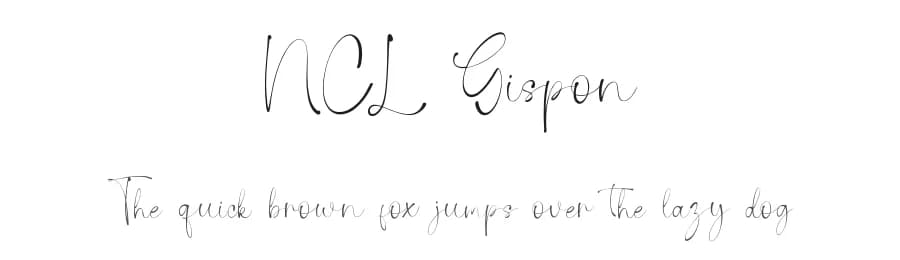 NCL Gispon
The quick brown fox jumps over the lazy dog